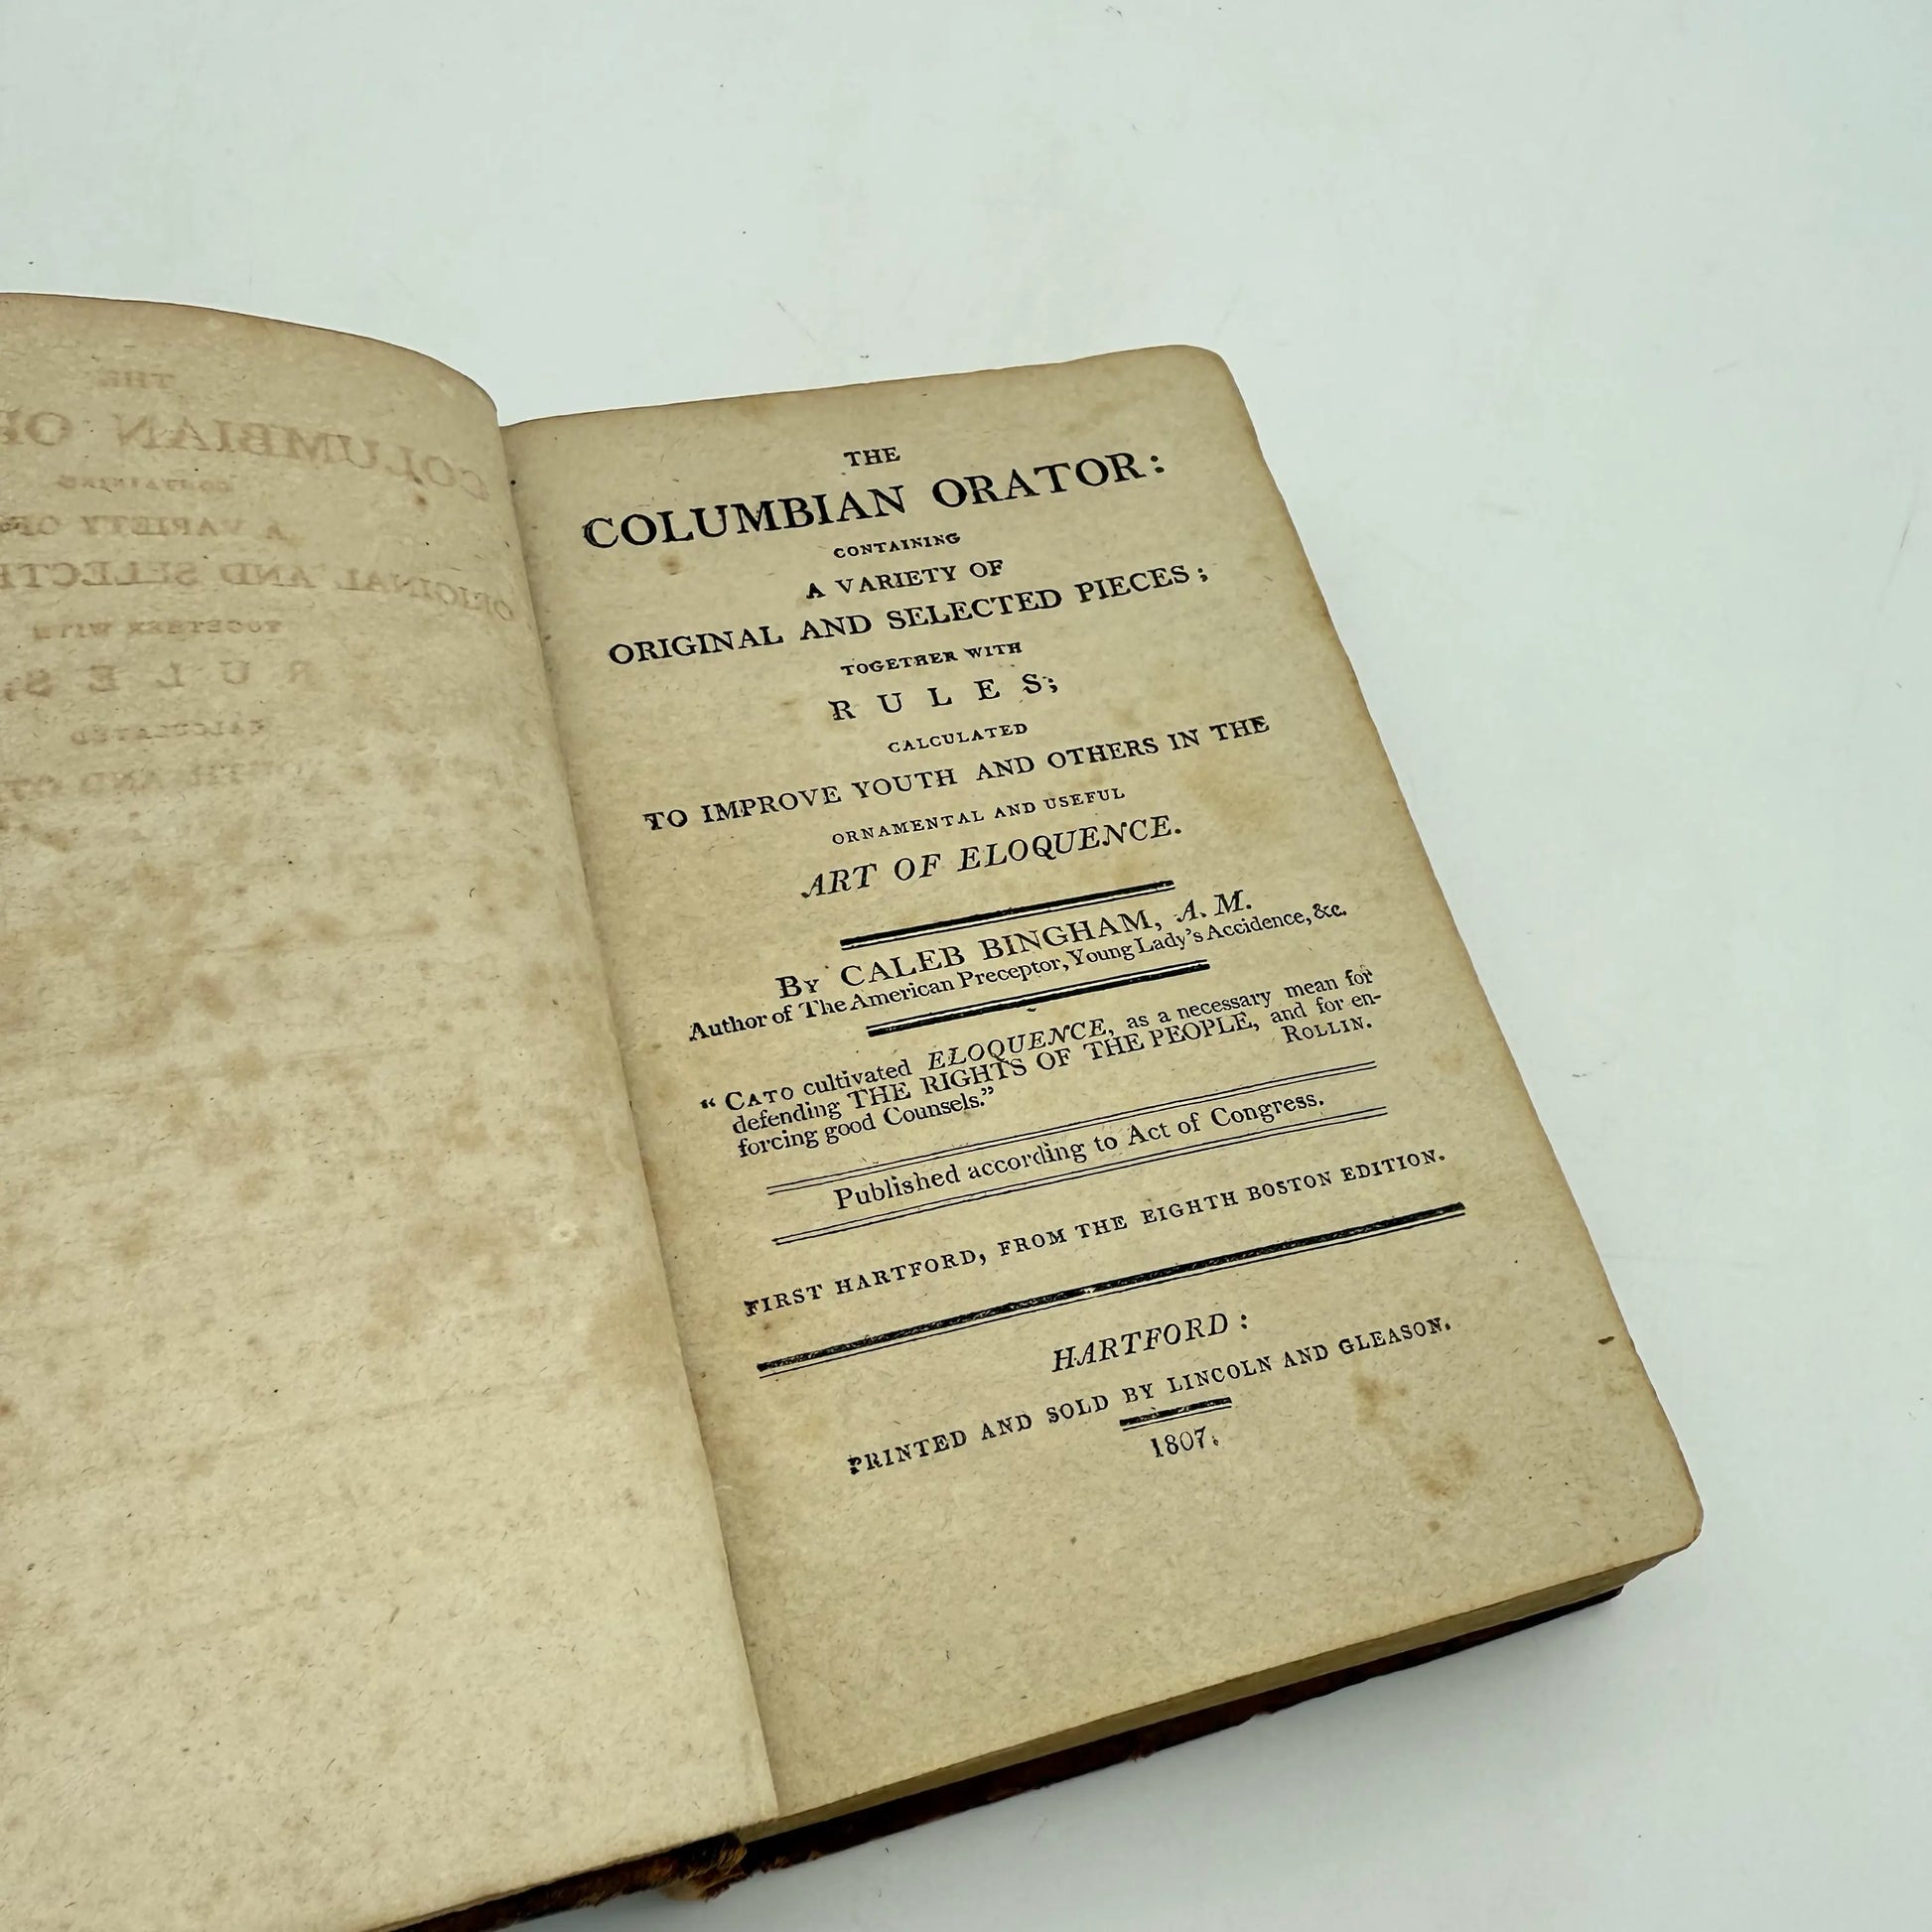 THE
COLUMBIAN ORATOR:
CONTAINING
A VARIETY OF
ORIGINAL AND SELECTED PIECES;
TOGETHER WITH
RULES;
CALCULATED
TO IMPROVE YOUTH AND OTHERS IN THE
ORNAMENTAL AND USEFUL
ART OF ELOQUENCE.
By CALEB BINGHAM, A. M.
Author of The American Preceptor, Young Lady's Accidence, &c.
“ CATO cultivated ELOQUENCE, as a necessary mean for
defending THE RIGHTS OF THE PEOPLE, and for en-
forcing good Counsels.” ROLLIN.
Published according to Act of Congress.
FIRST HARTFORD, FROM THE EIGHTH BOSTON EDITION.
HARTFORD:
PRINTED AND SOLD BY LINCOLN AND GLEASON.
1807.